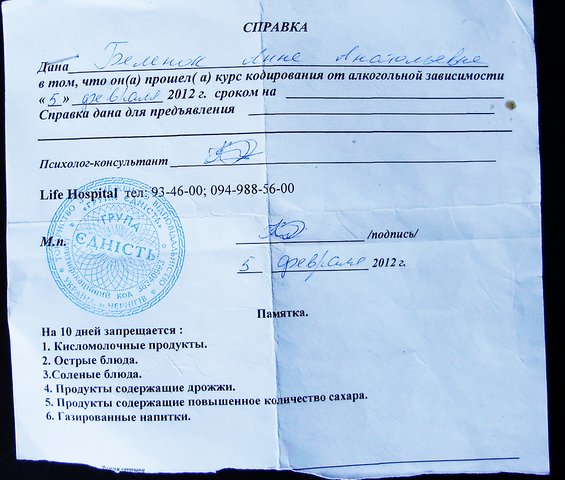 СПРАВКА
Дана Беленок Анне Анатольевне
в том, что он(а) прошел( а) курс кодирования от алкогольной зависимости
« 5 » февраля 2012 г. сроком на
Справка дана для предъявления
Психолог-консультант
Life Hospital тел: 93-46-00; 094-988-56-00
ГРУПА
ЄДНІСТЬ
М.п. /подпись/
5 февраля 2012 г.
Памятка.
На 10 дней запрещается :
1. Кисломолочные продукты.
2. Острые блюда.
3.Соленые блюда.
4. Продукты содержащие дрожжи.
5. Продукты содержащие повышенное количество сахара.
6. Газированные напитки.